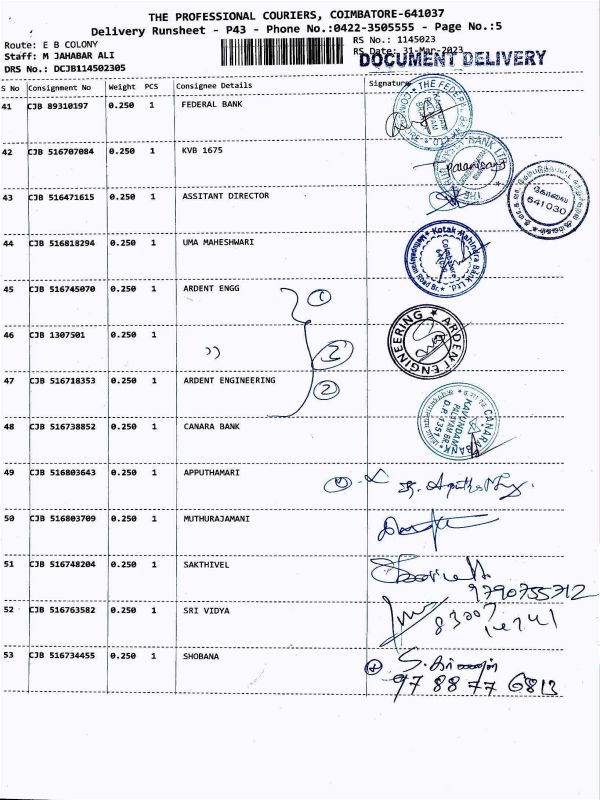 THE PROFESSIONAL COURIERS, COIMBATORE-641037
Delivery Runsheet - P43 - Phone No.:0422-3505555 - Page No.:5
Route: E B COLONY
RS No.: 1145023
Staff: M JAHABAR ALI
RS Date: 31-Mar-2023
DRS No.: DCJB114502305
DOCUMENT DELIVERY
S No Consignment No Weight PCS Consignee Details Signature
41 CJB 89310197 0.250 1 FEDERAL BANK
THE FEDERAL
42 CJB 516707084 0.250 1 KVB 1675
BANK LTD
43 CJB 516471615 0.250 1 ASSITANT DIRECTOR
கோவை
641030
44 CJB 516818294 0.250 1 UMA MAHESHWARI
Kotak Mahindra Bank Ltd.
Coimbatore
45 CJB 516745070 0.250 1 ARDENT ENGG
1
46 CJB 1307501 0.250 1 ))
2
ARDENT ENGINEERING
47 CJB 516718353 0.250 1 ARDENT ENGINEERING
2
48 CJB 516738852 0.250 1 CANARA BANK
CANARA BANK
KAVUNDAM
PALAYAM BR.
D.P. 1351
49 CJB 516803643 0.250 1 APPUTHAMARI
50 CJB 516803709 0.250 1 MUTHURAJAMANI
51 CJB 516748204 0.250 1 SAKTHIVEL
9790755712
52 CJB 516763582 0.250 1 SRI VIDYA
83007
53 CJB 516734455 0.250 1 SHOBANA
97 88 77 6813